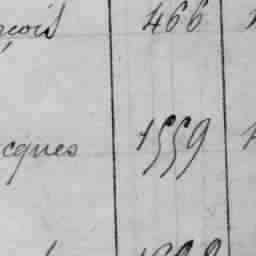 çois 466
cques 1559